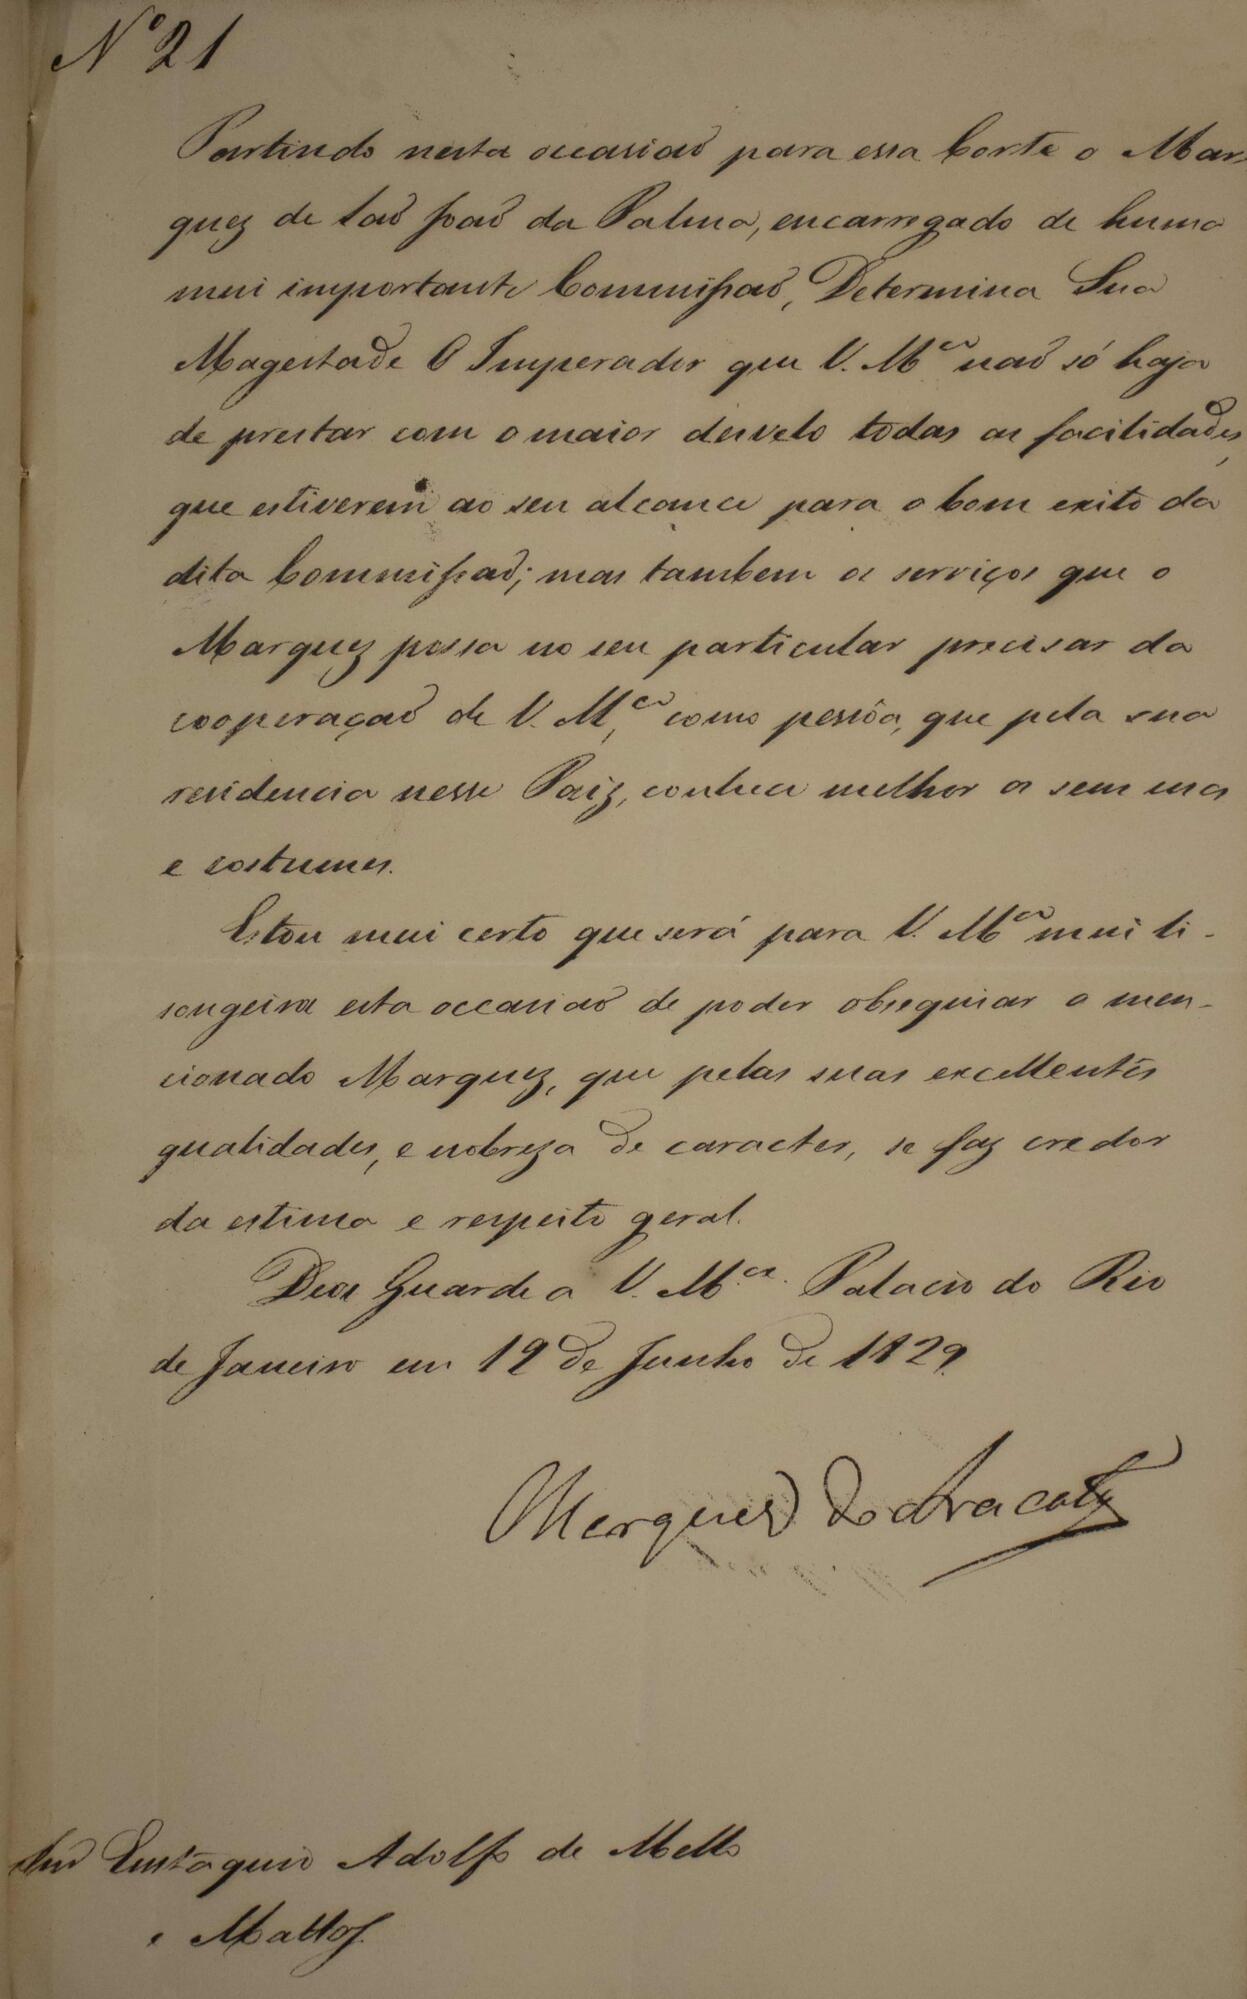 Nº 21
Partindo nesta occasiaõ para essa Corte o Mar-
quez de Saõ Joaõ da Palma, encarregado de huma
mui importante Commissaõ, Determina Sua
Magestade O Imperador que V. M.ce naõ só haja
de prestar com o maior desvelo todas as facilidades,
que estiverem ao seu alcance para o bom exito da
dita Commissaõ; mas tambem os serviços que o
Marquez possa no seu particular precisar da
cooperaçaõ de V. M.ce, como pessôa, que pela sua
residencia nesse Paiz, conhece melhor os seus usos
e costumes.
Estou mui certo que será para V. M.ce mui li-
songeira esta occasiaõ de poder obsequiar o men-
cionado Marquez, que pelas suas excellentes
qualidades, e nobreza de caracter, se faz credor
da estima e respeito geral.
Deos Guarde a V. M.ce. Palacio do Rio
de Janeiro em 19 de Junho de 1829.
Marquez do Aracaty
Eustaquio Adolfo de Mello
e Mattos.